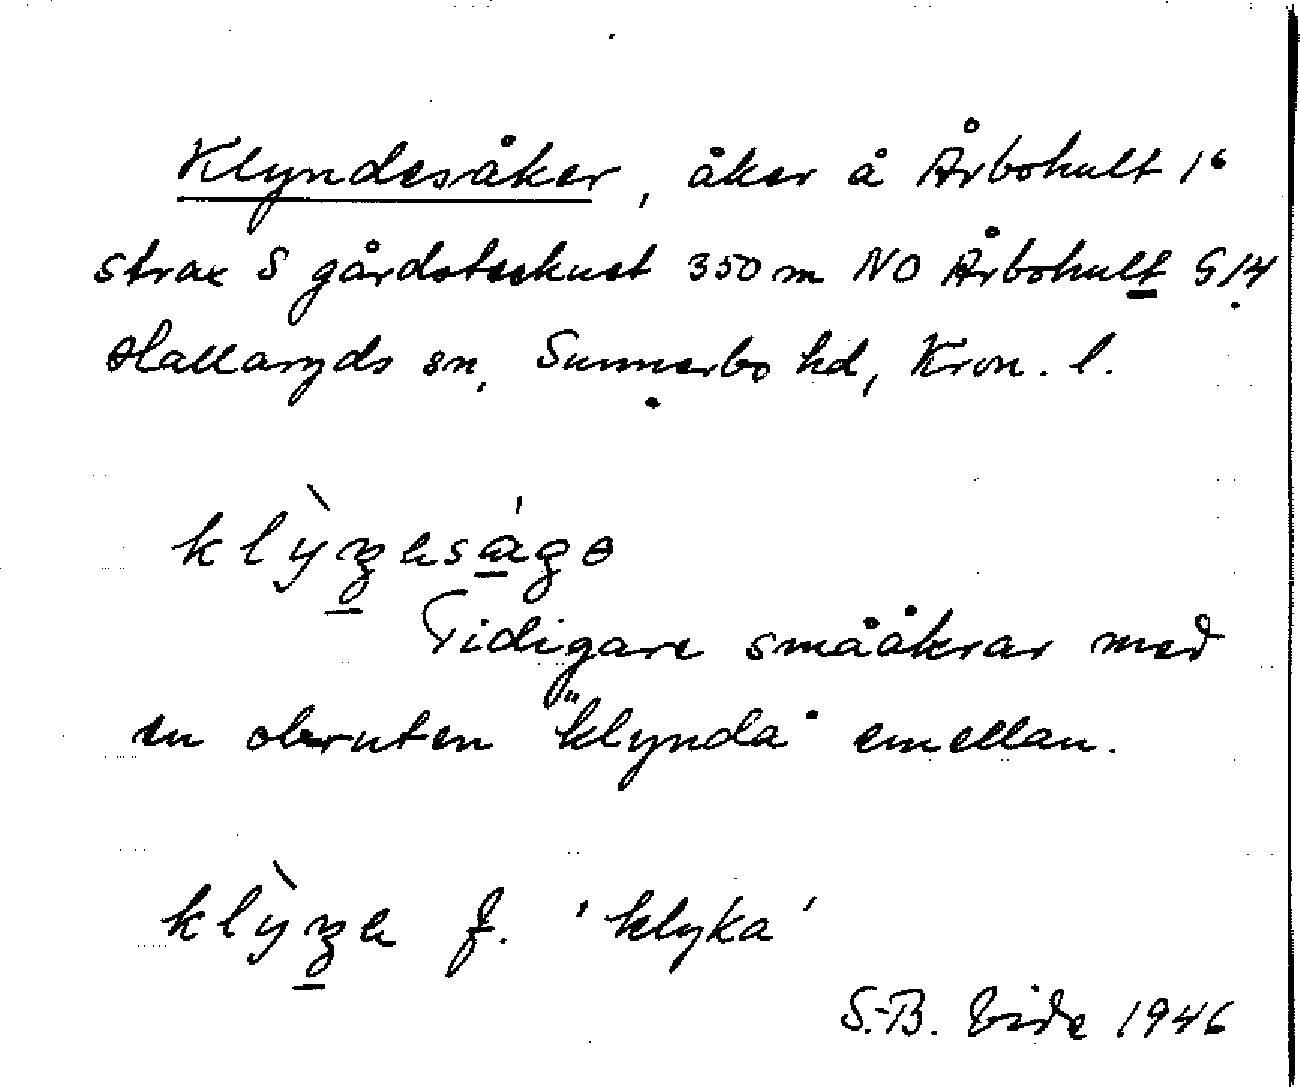 Klyndesåker, åker å Årbohult 1⁶
strax S gårdstuskust 350 m NO Årbohult S/4
Hallaryds sn, Sunnerbo hd, Kron. l.
Tidigare smååkrar med
en obruten "klynda" emellan.
f. 'klyka'
S.-B. Vide 1946